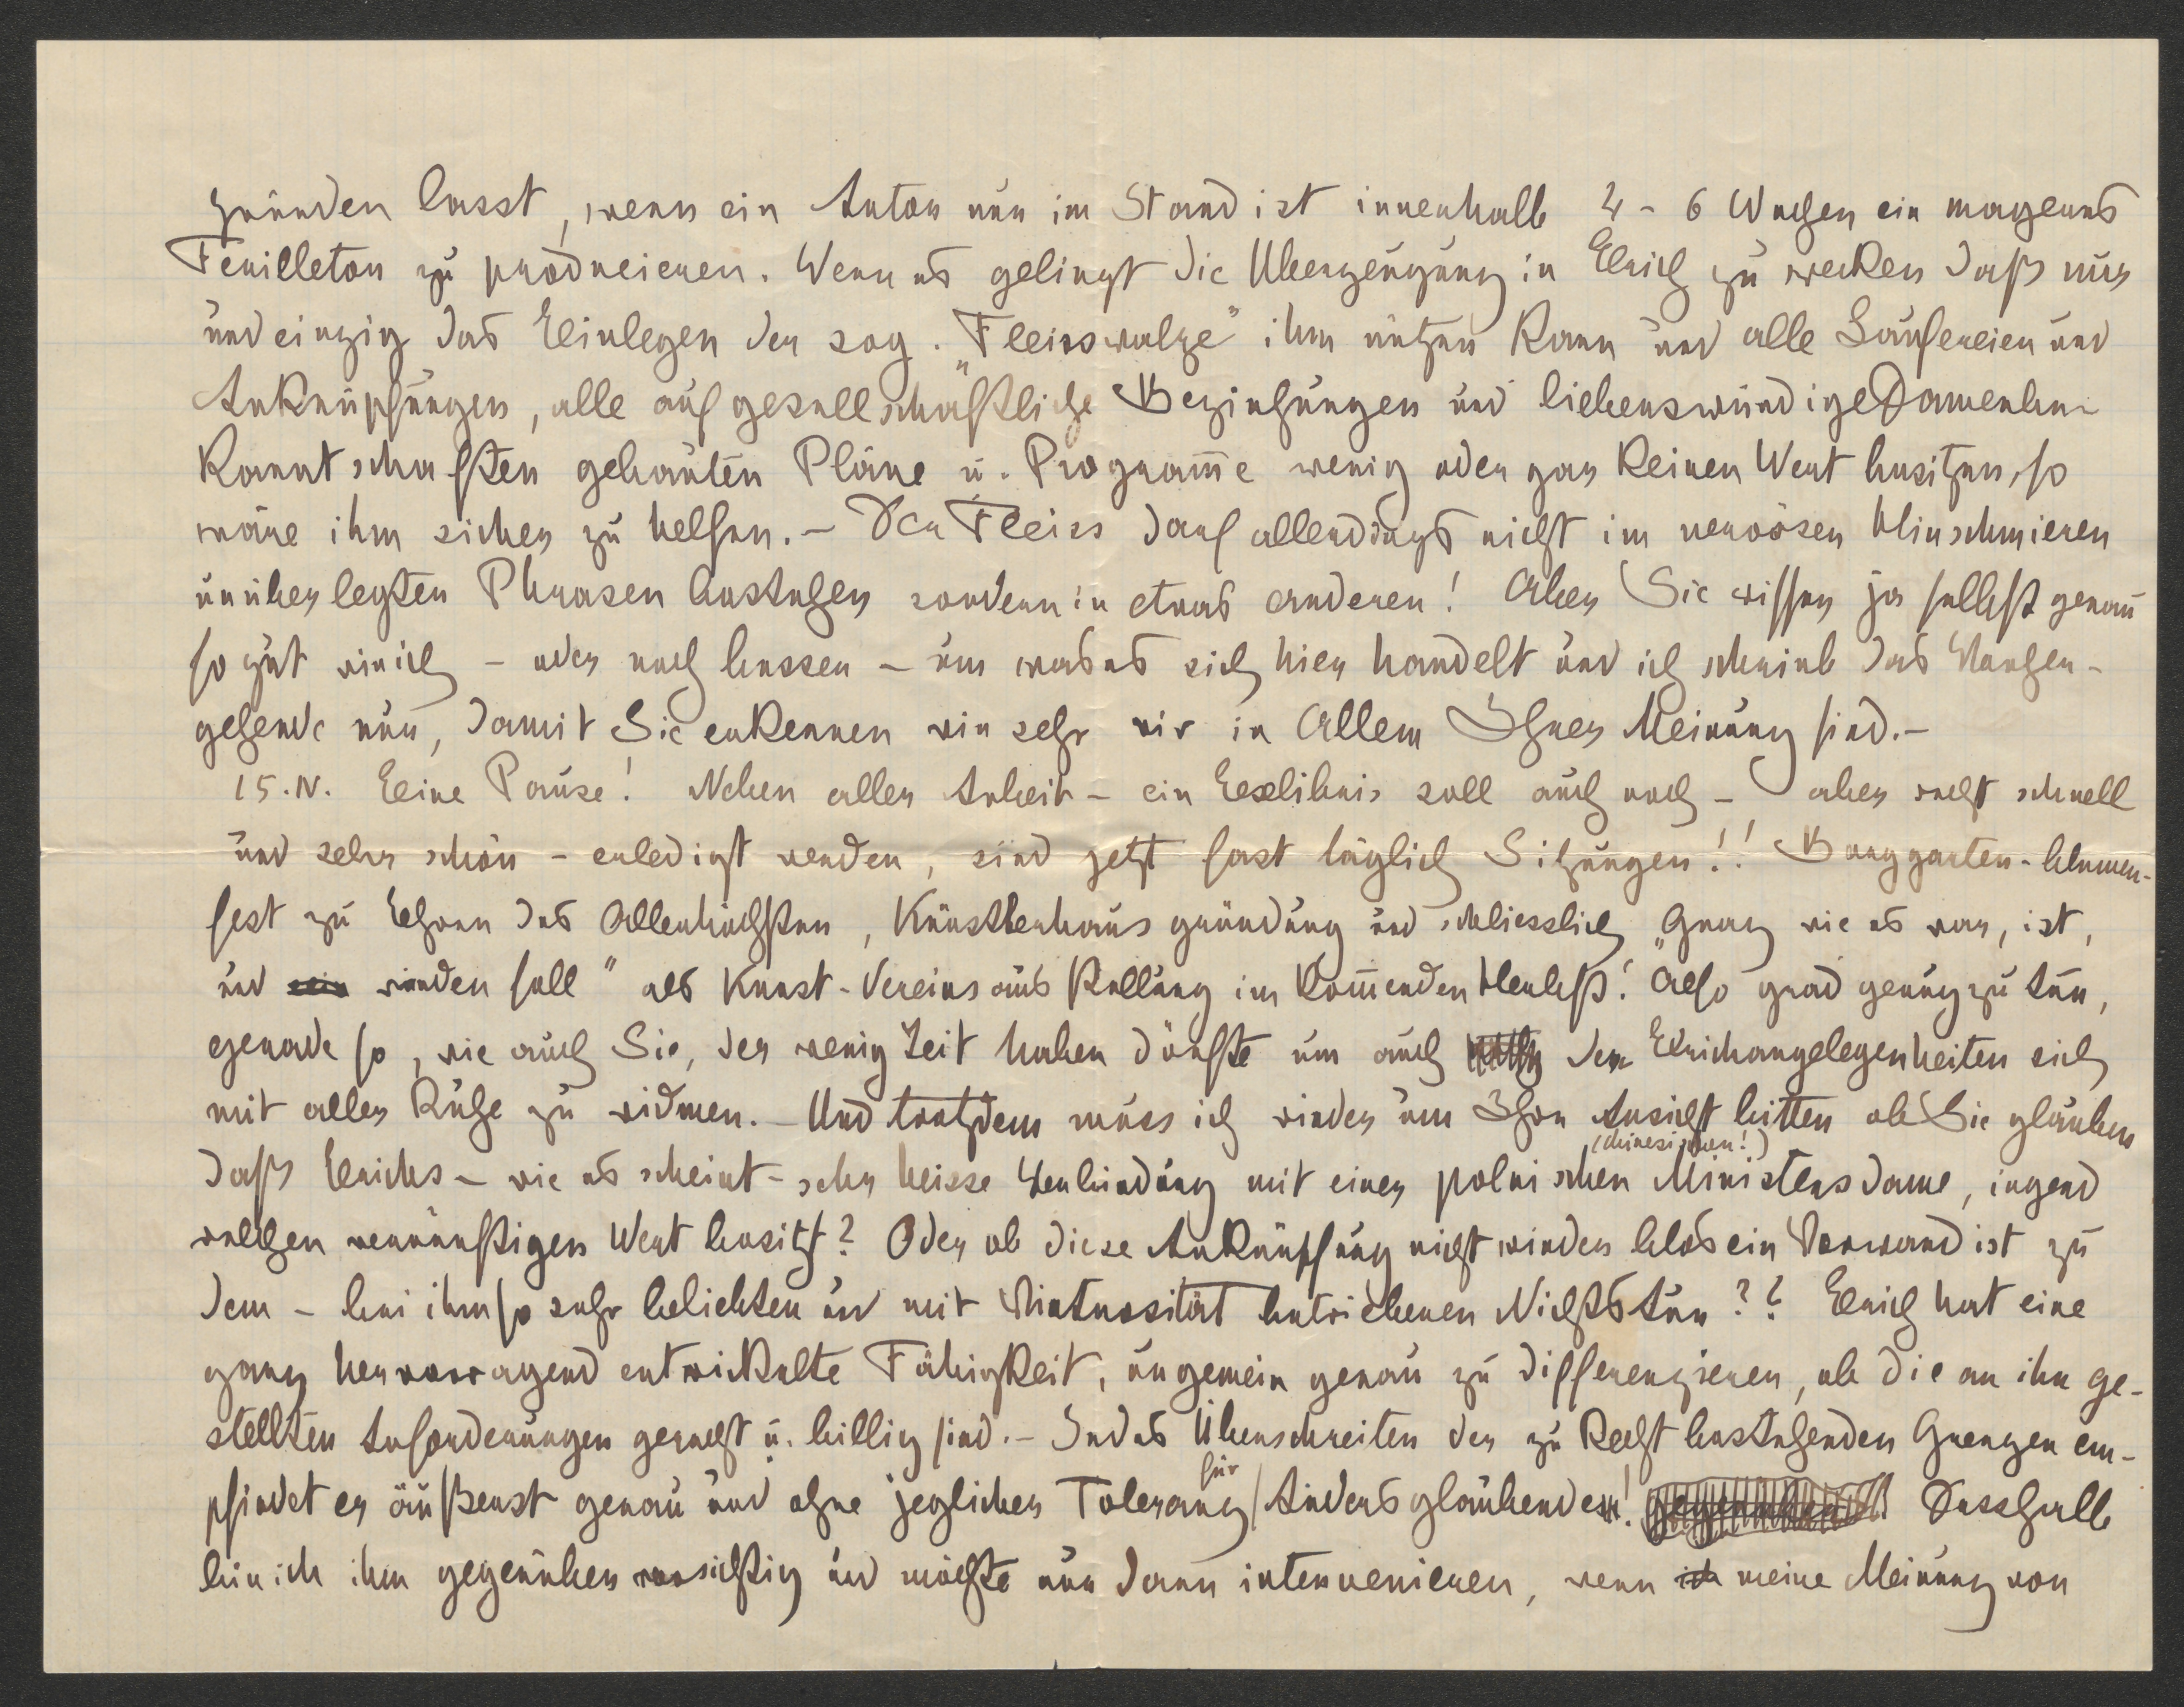 gründen lasst, wenn ein Autor nur im Stand ist innerhalb 4 - 6 Wochen ein mageres
Feuilleton zu produzieren. Wenn es gelingt die Überzeugung in Erich zu wecken daß nur
und einzig das Einlegen der sog. „Fleisswalze" ihm nützen kann und alle Laufereien und
Anknüpfungen, alle auf gesellschaftliche Beziehungen und liebenswürdige Damenbe-
kanntschaften gebauten Pläne u. Programme wenig oder gar keinen Wert besitzen, so
wäre ihm sicher zu helfen. – Der Fleiss darf allerdings nicht im nervösen Hinschmieren
unüberlegten Phrasen bestehen sondern in etwas anderen! Aber Sie wissen ja selbst genau
so gut wie ich – oder noch besser – um was es sich hier handelt und ich schreib das Vorher-
gehende nur, damit Sie erkennen wie sehr wir in Allem Ihrer Meinung sind. –
15. IV. Eine Pause! Neben aller Arbeit – ein Exlibris soll auch noch – aber recht schnell
und sehr schön – erledigt werden, sind jetzt fast täglich Sitzungen!! Burggarten-blumen-
fest zu Ehren des Allerhöchsten, Künstlerhausgründung und schliesslich „Graz wie es war, ist,
und sein werden soll" als Kunst-Vereinsausstellung im kommenden Herbst! Also grad genug zu tun,
gerade so, wie auch Sie, der wenig Zeit haben dürfte um auch den Erichangelegenheiten sich
mit aller Ruhe zu widmen. – Und trotzdem muss ich wieder um Ihre Ansicht bitten ob Sie glauben
daß Erichs – wie es scheint – sehr heisse Verbindung mit einer polnischen (chinesischen!) Ministersdame, irgend
welchen vernünftigen Wert besitzt? Oder ob diese Anknüpfung nicht wieder blos ein Vorwand ist zu
dem – bei ihm so sehr beliebten und mit Virtuosität betriebenen Nichtstun?? Erich hat eine
ganz hervorragend entwickelte Fähigkeit, ungemein genau zu differenzieren, ob die an ihn ge-
stellten Anforderungen gerecht u. billig sind. – Jedes Überschreiten der zu Recht bestehenden Grenzen em-
pfindet er äußerst genau und ohne jeglicher Toleranz für Andersglaubenden! Desshalb
bin ich ihm gegenüber vorsichtig und möchte nur dann intervenieren, wenn ich meine Meinung von